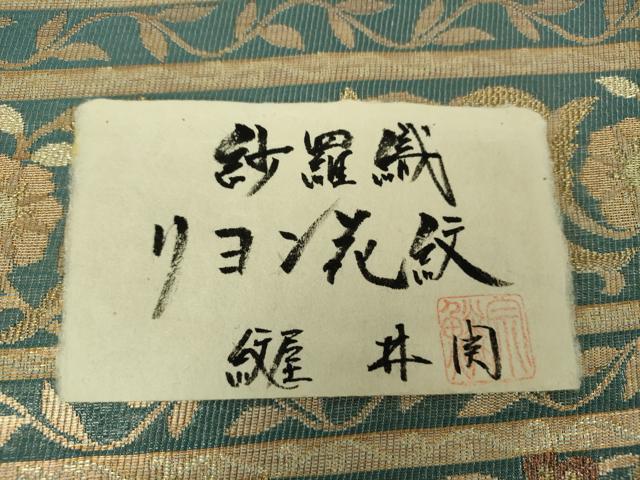 紗羅織
リヨン花紋
紋屋 井関